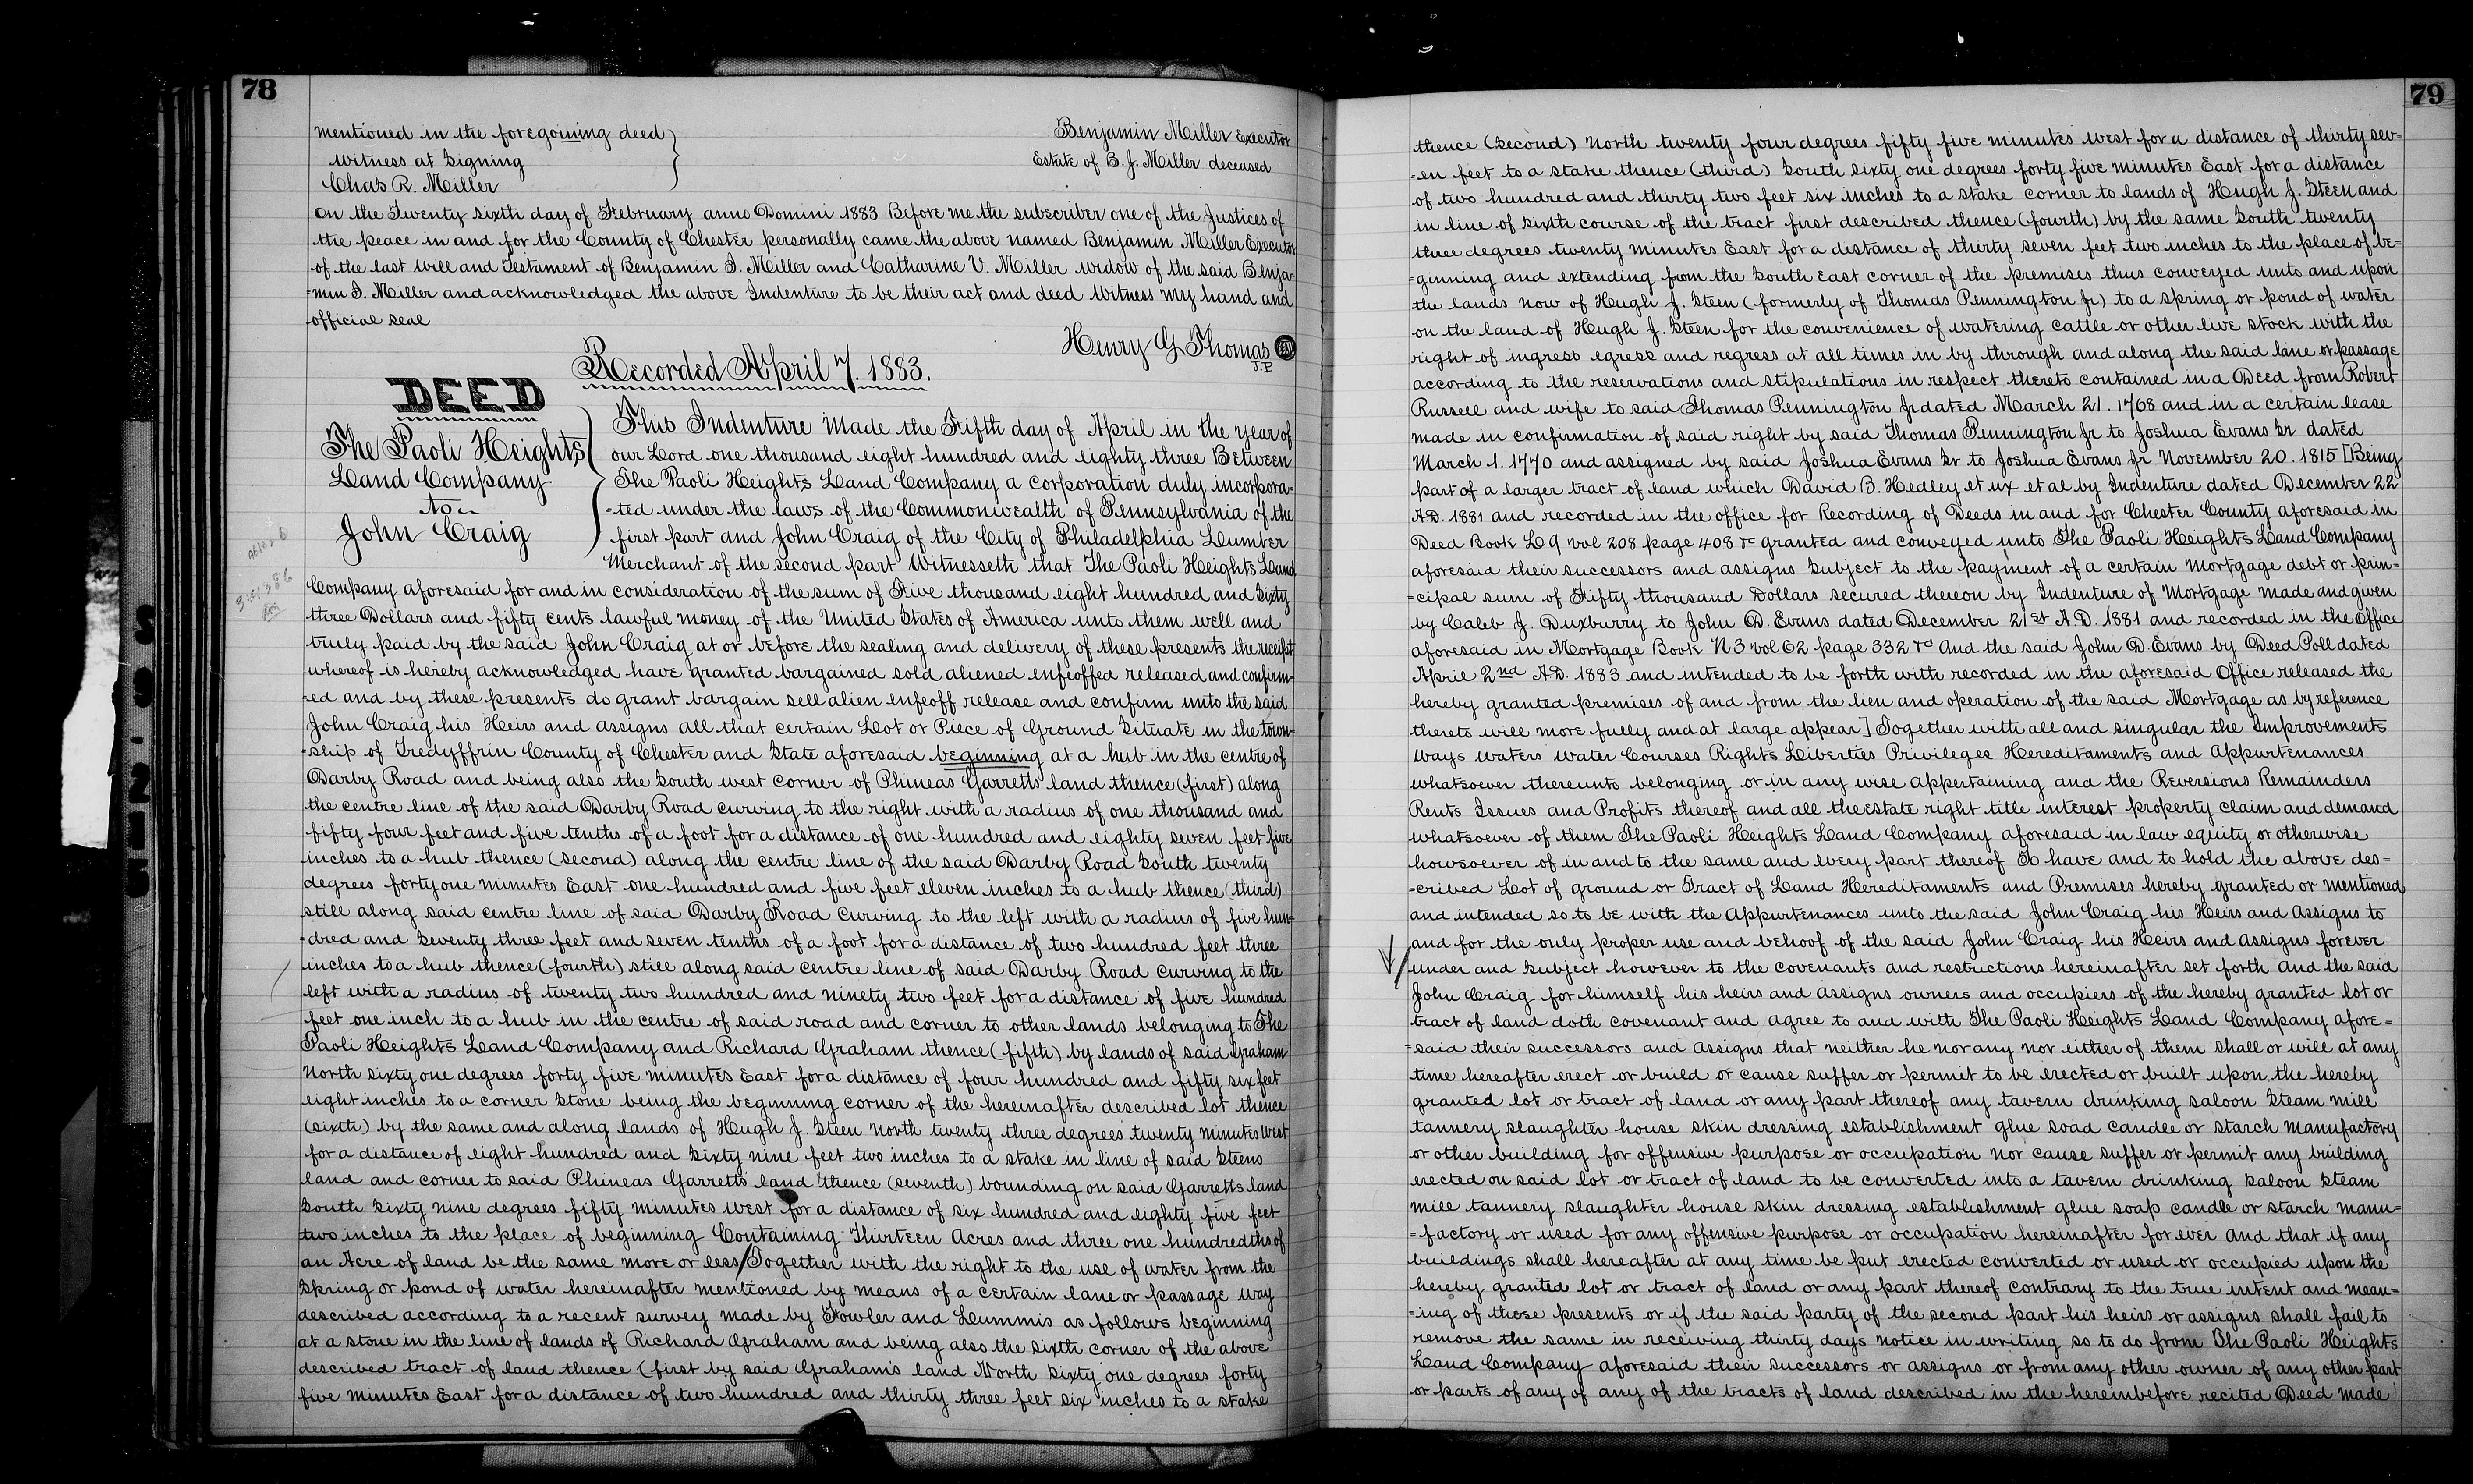 78
mentioned in the foregoing deed
Witness at Signing
Chas R. Miller
Benjamin Miller Executor
Estate of B. J. Miller deceased
On the Twenty sixth day of February anno Domini 1883 Before me the subscriber one of the Justices of
the peace in and for the County of Chester personally came the above named Benjamin Miller Executor
of the last Will and Testament of Benjamin J. Miller and Catharine V. Miller widow of the said Benja-
=min J. Miller and acknowledged the above Indenture to be their act and deed Witness my hand and
official seal
Henry G Thomas
J.P
Recorded April 7. 1883.
DEED
The Paoli Heights
Land Company
to
John Craig
This Indenture Made the Fifth day of April in the year of
our Lord one thousand eight hundred and eighty three Between
The Paoli Heights Land Company a corporation duly incorpora-
=ted under the laws of the Commonwealth of Pennsylvania of the
first part and John Craig of the City of Philadelphia Lumber
Merchant of the second part Witnesseth that The Paoli Heights Land
Company aforesaid for and in consideration of the sum of Five thousand eight hundred and Sixty
three Dollars and fifty cents lawful money of the United States of America unto them well and
truly paid by the said John Craig at or before the sealing and delivery of these presents the receipt
whereof is hereby acknowledged have granted bargained sold aliened enfeoffed released and confirm-
=ed and by these presents do grant bargain sell alien enfeoff release and confirm unto the said
John Craig his Heirs and Assigns all that certain Lot or Piece of Ground Situate in the town-
=ship of Tredyffrin County of Chester and State aforesaid beginning at a hub in the centre of
Darby Road and being also the South west corner of Phineas Garretts land thence (first) along
the centre line of the said Darby Road curving to the right with a radius of one thousand and
fifty four feet and five tenths of a foot for a distance of one hundred and eighty seven feet five
inches to a hub thence (second) along the centre line of the said Darby Road South twenty
degrees forty one minutes East one hundred and five feet eleven inches to a hub thence (third)
still along said centre line of said Darby Road Curving to the left with a radius of five hun-
=dred and Seventy three feet and seven tenths of a foot for a distance of two hundred feet three
inches to a hub thence (fourth) still along said centre line of said Darby Road curving to the
left with a radius of twenty two hundred and ninety two feet for a distance of five hundred
feet one inch to a hub in the centre of said road and corner to other lands belonging to The
Paoli Heights Land Company and Richard Graham thence (fifth) by lands of said Graham
North sixty one degrees forty five minutes East for a distance of four hundred and fifty six feet
eight inches to a corner Stone being the beginning corner of the hereinafter described lot thence
(sixth) by the same and along lands of Hugh J. Steen North twenty three degrees twenty minutes West
for a distance of eight hundred and Sixty nine feet two inches to a stake in line of said Steens
land and corner to said Phineas Garretts land thence (seventh) bounding on said Garretts land
South Sixty nine degrees fifty minutes West for a distance of six hundred and eighty five feet
two inches to the place of beginning Containing Thirteen Acres and three one hundredths of
an Acre of land be the same more or less/Together with the right to the use of water from the
Spring or pond of water hereinafter mentioned by means of a certain lane or passage way
described according to a recent survey made by Fowler and Lummis as follows beginning
at a stone in the line of lands of Richard Graham and being also the sixth corner of the above
described tract of land thence (first by said Graham's land North Sixty one degrees forty
five minutes East for a distance of two hundred and thirty three feet six inches to a stake
79
thence (Second) North twenty four degrees fifty five minutes West for a distance of thirty sev-
=en feet to a stake thence (third) South Sixty one degrees forty five minutes East for a distance
of two hundred and thirty two feet six inches to a stake corner to lands of Hugh J. Steen and
in line of Sixth course of the tract first described thence (fourth) by the same South twenty
three degrees twenty minutes East for a distance of thirty seven feet two inches to the place of be-
=ginning and extending from the South East corner of the premises thus conveyed unto and upon
the lands now of Hugh J. Steen (formerly of Thomas Pennington Jr) to a spring or pond of water
on the land of Hugh J. Steen for the convenience of watering Cattle or other live stock with the
right of ingress egress and regress at all times in by through and along the said lane or passage
according to the reservations and stipulations in respect thereto contained in a Deed from Robert
Russell and wife to said Thomas Pennington Jr dated March 21. 1768 and in a certain lease
made in confirmation of said right by said Thomas Pennington Jr to Joshua Evans Sr dated
March 1. 1770 and assigned by said Joshua Evans Sr to Joshua Evans Jr November 20. 1815 [Being
part of a larger tract of land which David B. Hedley et ux et al by Indenture dated December 22
A.D. 1881 and recorded in the office for Recording of Deeds in and for Chester County aforesaid in
Deed Book L 9 vol 208 page 408 &c granted and conveyed unto The Paoli Heights Land Company
aforesaid their successors and assigns Subject to the payment of a certain Mortgage debt or prin-
=cipal sum of Fifty thousand Dollars secured thereon by Indenture of Mortgage made and given
by Caleb J. Duxburry to John D. Evans dated December 21st A.D. 1881 and recorded in the Office
aforesaid in Mortgage Book N 3 vol 62 page 332 &c And the said John D Evans by Deed Poll dated
April 2nd A.D. 1883 and intended to be forth with recorded in the aforesaid Office released the
hereby granted premises of and from the lien and operation of the said Mortgage as by reference
thereto will more fully and at large appear] Together with all and singular the Improvements
Ways Waters Water Courses Rights Liberties Privileges Hereditaments and Appurtenances
whatsoever thereunto belonging or in any wise appertaining and the Reversions Remainders
Rents Issues and Profits thereof and all the Estate right title interest property claim and demand
whatsoever of them The Paoli Heights Land Company aforesaid in law equity or otherwise
howsoever of in and to the same and every part thereof To have and to hold the above des=
=cribed Lot of ground or Tract of Land Hereditaments and Premises hereby granted or mentioned
and intended so to be with the Appurtenances unto the said John Craig his Heirs and Assigns to
and for the only proper use and behoof of the said John Craig his Heirs and Assigns forever
under and Subject however to the covenants and restrictions hereinafter set forth And the said
John Craig for himself his heirs and assigns owners and occupiers of the hereby granted lot or
tract of land doth covenant and agree to and with The Paoli Heights Land Company afore=
=said their successors and assigns that neither he nor any nor either of them shall or will at any
time hereafter erect or build or cause suffer or permit to be erected or built upon the hereby
granted lot or tract of land or any part thereof any tavern drinking saloon Steam mill
tannery slaughter house skin dressing establishment glue soad candle or starch manufactory
or other building for offensive purpose or occupation nor cause suffer or permit any building
erected on said lot or tract of land to be converted into a tavern drinking saloon steam
mill tannery slaughter house skin dressing establishment glue soap candle or starch manu=
=factory or used for any offensive purpose or occupation hereinafter for ever And that if any
buildings shall hereafter at any time be put erected converted or used or occupied upon the
hereby granted lot or tract of land or any part thereof contrary to the true intent and mean=
=ing of these presents or if the said party of the second part his heirs or assigns shall fail to
remove the same in receiving thirty days notice in writing so to do from The Paoli Heights
Land Company aforesaid their successors or assigns or from any other owner of any other part
or parts of any of any of the tracts of land described in the hereinbefore recited Deed made